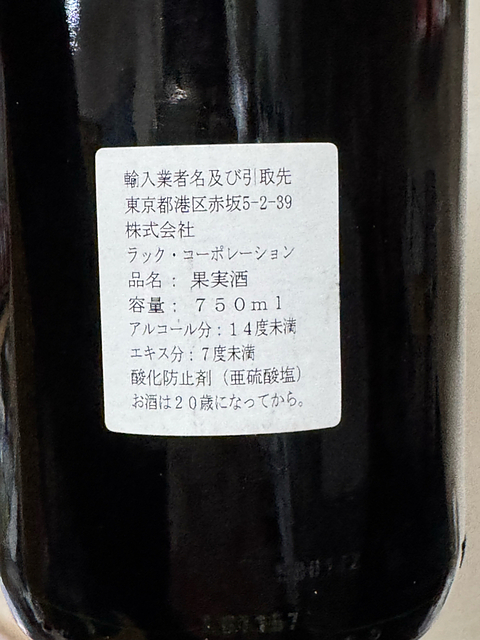 輸入業者名及び引取先
東京都港区赤坂5-2-39
株式会社
ラック・コーポレーション
品名：果実酒
容量：７５０ｍｌ
アルコール分：１４度未満
エキス分：７度未満
酸化防止剤（亜硫酸塩）
お酒は２０歳になってから。